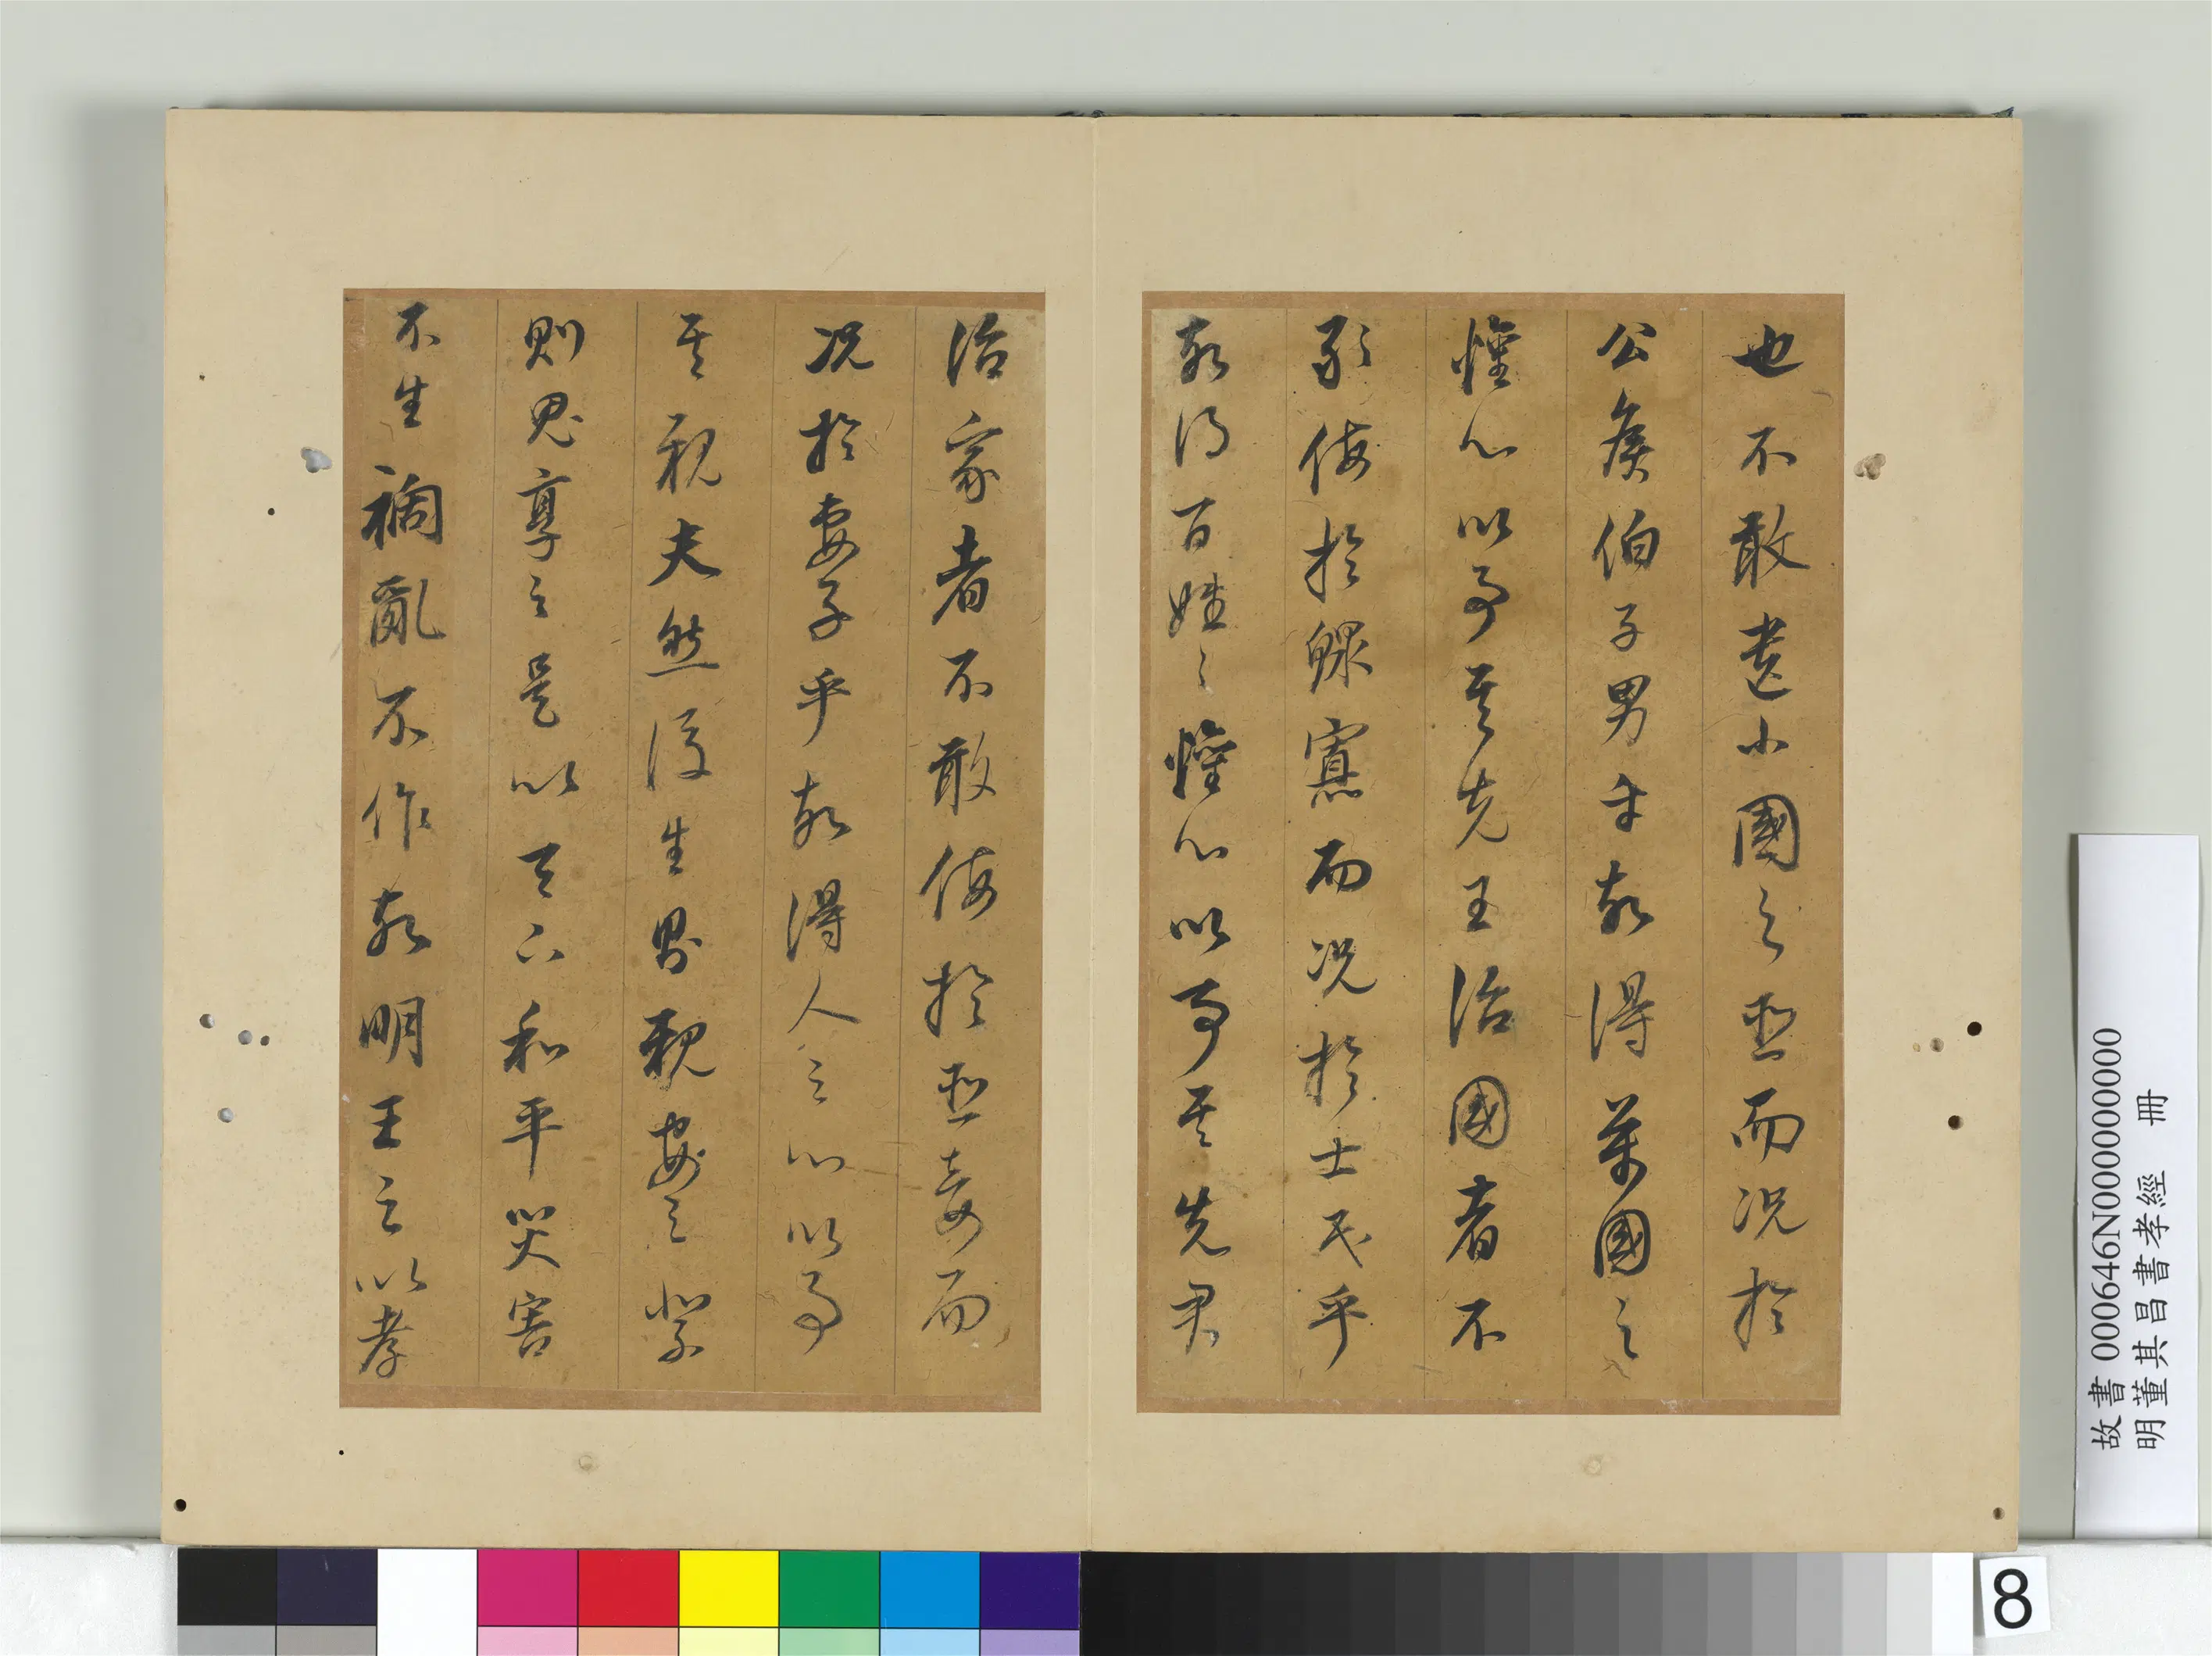 也不敢遺小國之臣而況於
公矦伯子男乎故得萬國之
懽心以事其先王治國者不
敢侮於鰥寡而況於士民乎
故得百姓之懽心以事其先君
治家者不敢侮於臣妾而
況於妻子乎故得人之心以事
其親夫然後生則親安之祭
則鬼享之是以天下和平災害
不生禍亂不作故明王之以孝
故書 000646N000000000
明董其昌書孝經 冊
8